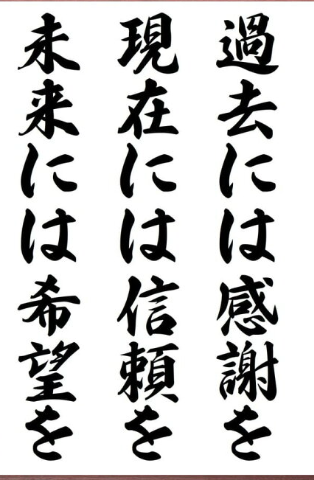 過去には感謝を
現在には信頼を
未来には希望を